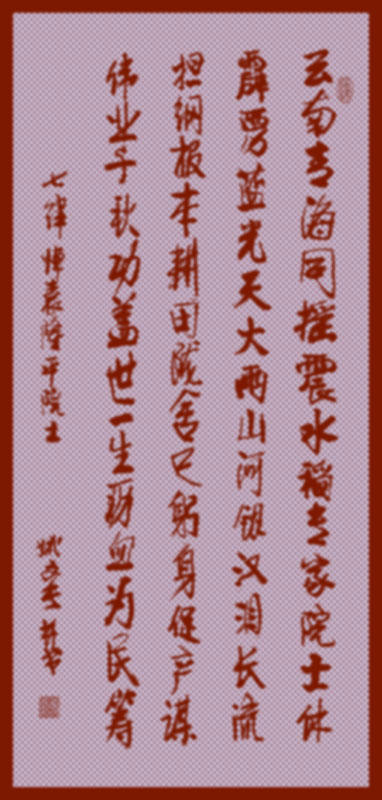 云南青海同摇震水稻专家院士休
霹雳蓝光天大雨山河银汉泪长流
担纲报本耕田陇舍己躬身促产谋
伟业千秋功盖世一生沥血为民筹
七律 悼袁隆平院士